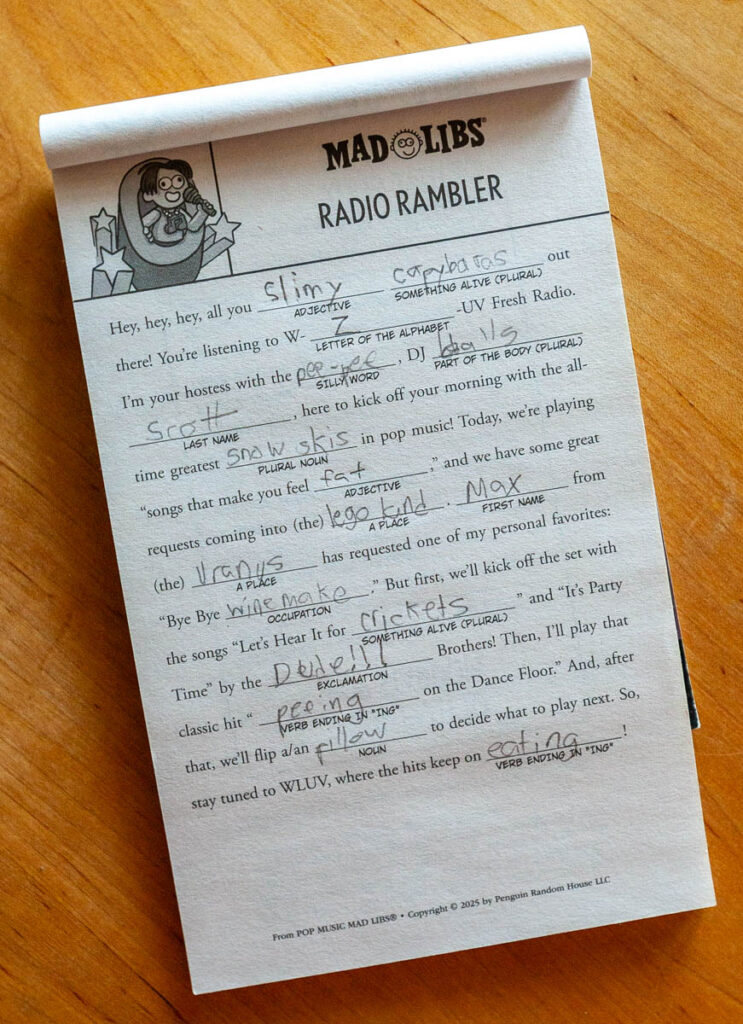 MAD LIBS®
RADIO RAMBLER
Hey, hey, hey, all you slimy capybaras out
ADJECTIVE SOMETHING ALIVE (PLURAL)
there! You're listening to W- Z -UV Fresh Radio.
LETTER OF THE ALPHABET
I'm your hostess with the pee-pee, DJ balls
SILLY WORD PART OF THE BODY (PLURAL)
Scott, here to kick off your morning with the all-
LAST NAME
time greatest snow skis in pop music! Today, we're playing
PLURAL NOUN
“songs that make you feel fat,” and we have some great
ADJECTIVE
requests coming into (the) lego kind. Max from
A PLACE FIRST NAME
(the) Uranys has requested one of my personal favorites:
A PLACE
“Bye Bye wine make.” But first, we'll kick off the set with
OCCUPATION
the songs “Let's Hear It for crickets” and “It's Party
SOMETHING ALIVE (PLURAL)
Time” by the Dude!!! Brothers! Then, I'll play that
EXCLAMATION
classic hit “peeing on the Dance Floor.” And, after
VERB ENDING IN "ING"
that, we'll flip a/an pillow to decide what to play next. So,
NOUN
stay tuned to WLUV, where the hits keep on eating!
VERB ENDING IN "ING"
From POP MUSIC MAD LIBS® • Copyright © 2025 by Penguin Random House LLC